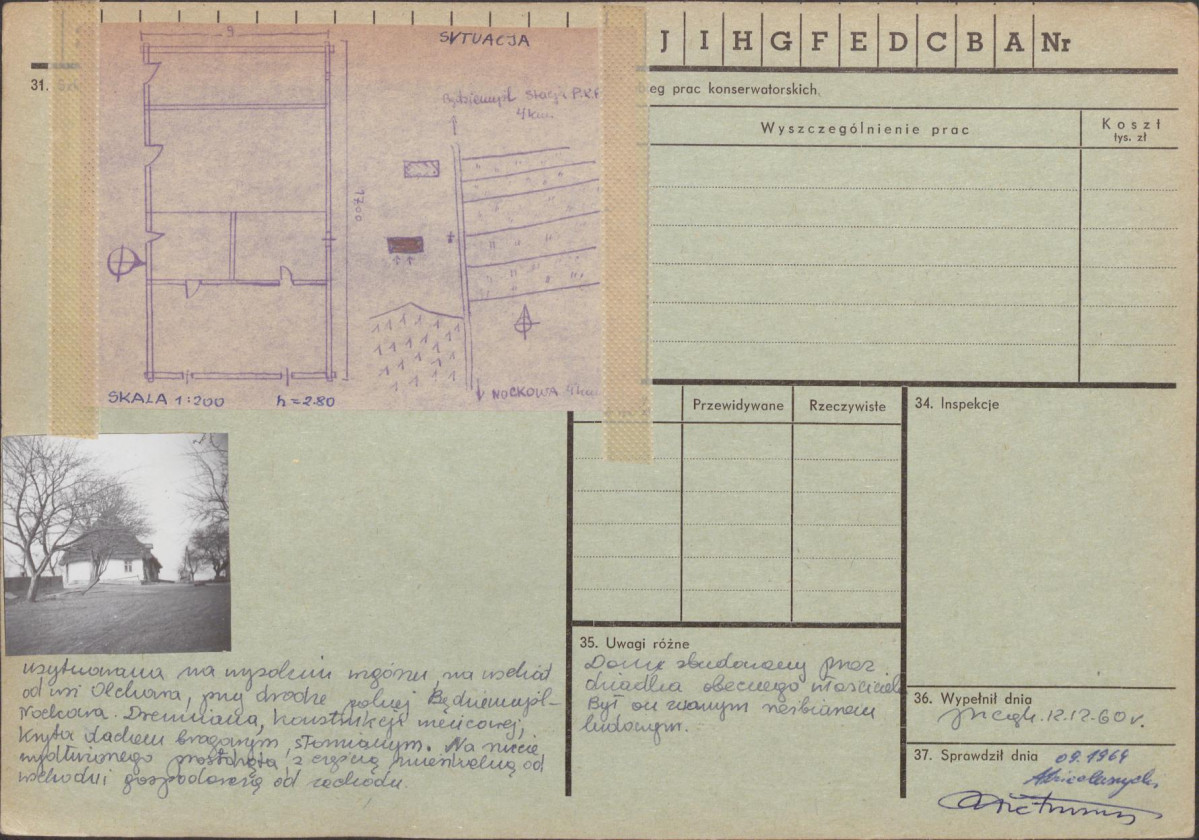 SYTUACJA
J I H G F E D C B A Nr
31.
9
1700
Będziemyśl Stacja P.K.P
4 km.
NOCKOWA 4 km
SKALA 1:200 h = 2.80
prac konserwatorskich
Wyszczególnienie prac
Koszt
tys. zł
Przewidywane
Rzeczywiste
34. Inspekcje
usytuowana na wysokim wzgórzu, na wschód
od wsi Olchowa, przy drodze polnej Będziemyśl-
Nockowa. Drewniana, konstrukcji
kryta dachem słomianym. Na rzucie
wydłużonego prostokąta, z częścią mieszkalną od
wschodu i gospodarczą od zachodu.
35. Uwagi różne
Domek zbudowany przez
dziadka obecnego właściciela
Był on znanym rzeźbiarzem
ludowym.
36. Wypełnił dnia
12.12.60 r.
37. Sprawdził dnia 09.1964